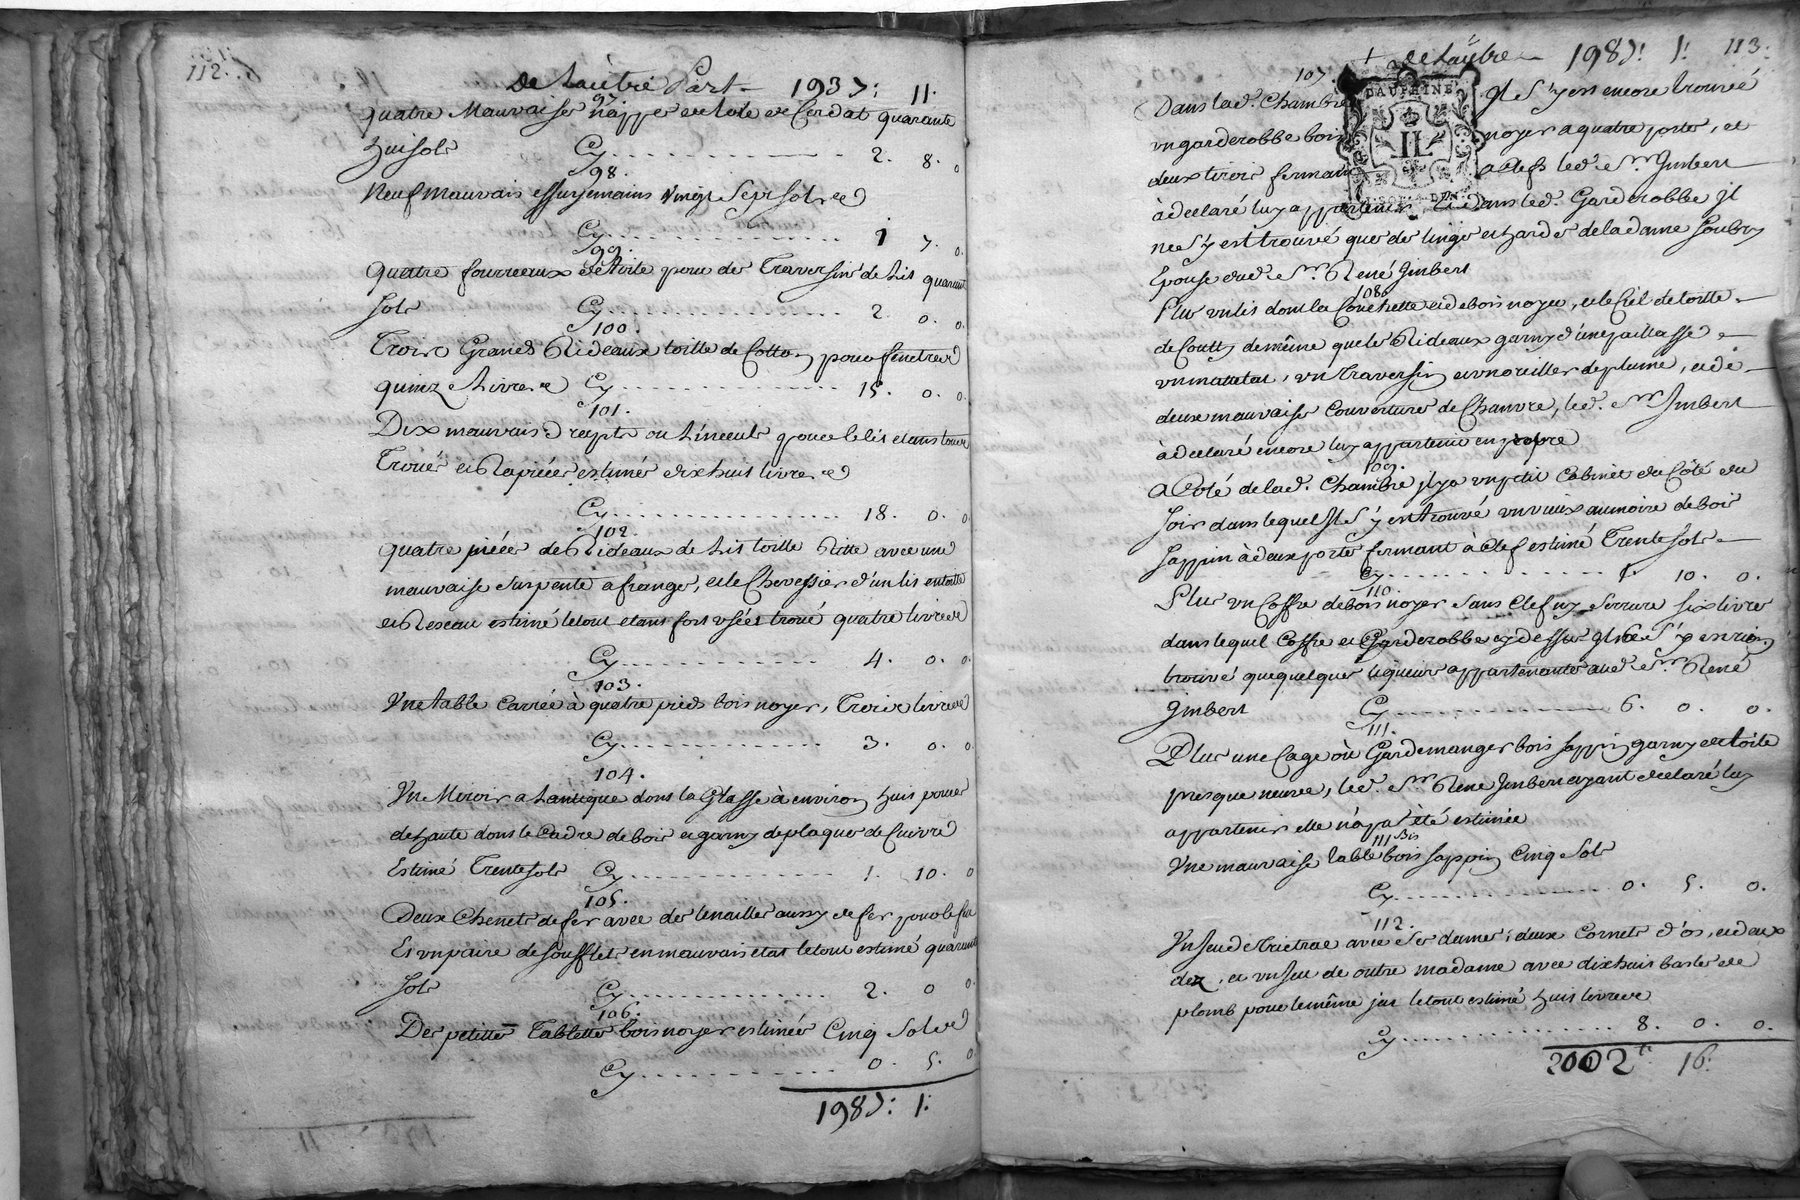 112.
De Lautre Part 1937: 11.
97.
quatre Mauvaises nappes de toile de Cordat quarante
huisols Cy 2. 8. 0
98.
Neuf mauvais essuyemains vingt Sept sols
Cy 1 7. 0.
99.
quatre fourreaux de toile pour des Traversins de Lit quarante
sols Cy 2. 0. 0.
100.
Trois Grands Rideaux toille de Cotton pour fenetres
quinze Livres Cy 15. 0. 0.
101.
Dix mauvais draps ou Linceuls pour le lit etans tous
Troués et Rapiécés estimés dix huit livres
Cy 18. 0. 0
102.
quatre pièces de Rideaux de Lit toille Ritte avec une
mauvaise Surpente a franges, et le Chevessier d'un lit en toille
et Reseau estimé le tout etans fort usées troué quatre livres
Cy 4. 0. 0.
103.
Une table Carrée à quatre pieds bois noyer, Trois livres
Cy 3. 0. 0
104.
Un Miroir a Lantique dont la Glasse à environ huit pouces
de haute dont le Cadre de bois et garny de plaques de Cuivre
Estimé Trente sols Cy 1. 10. 0
105.
Deux Chenets de fer avec des tenailles aussy de fer pour le feu
Et un paire de soufflets en mauvais etat le tout estimé quarante
sols Cy 2. 0 0.
106.
Des petittes Tablettes bois noyer estimées Cinq Sols
Cy 0. 5. 0
1987: 1:
113.
+ de Lautre 1987: 1:
107.
DAUPHINE
Dans lad. Chambre Il S'y est encore trouvé
un garderobbe bois noyer a quatre portes, et
deux tiroirs fermant a Clefs led. Sr. Imbert
à declaré luy appartenir, Et dans led. Garderobbe Il
ne S'y est trouvé que des linges et hardes de la dame Soubry
Epouse dud. Sr. René Imbert
108.
Plus un lit dont la Couchette est de bois noyer, et le Ciel de toille
de Coutty de même que les Rideaux garny d'une paillasse
un mattelat, un Traversin et un oreiller de plume, et de
deux mauvaises Couvertures de Chanvre, led. Sr. Imbert
à declaré encore luy appartenir en propre
109.
A Coté de lad. Chambre Il y a un petit Cabinet du Côté du
soir dans lequel Il S'y est trouvé un vieux aumoire de bois
sappin à deux portes fermant à Clef estimé Trente sols
Cy 1. 10. 0.
110.
Plus un Coffre de bois noyer Sans Clef ny Serrure six livres
dans lequel Coffre et Garderobbe cy dessus Il ne S'y est rien
trouvé que quelques liqueurs appartenantes aud. Sr. René
Imbert Cy 6. 0. 0.
111.
Plus une Cage où Gardemanger bois sappin garny de toile
presque neuve, led. Sr. René Imbert ayant declaré luy
appartenir elle n'a pas été estimée
111 Bis
Une mauvaise table bois sappin Cinq Sols
Cy 0. 5. 0.
112.
Un Jeu de trictrac avec Ses dames, deux Cornets d'os, et deux
dez, et un Jeu de outre madame avec dix huit barles de
plomb pour le même jeu le tout estimé huit livres
Cy 8. 0. 0.
2002 16.